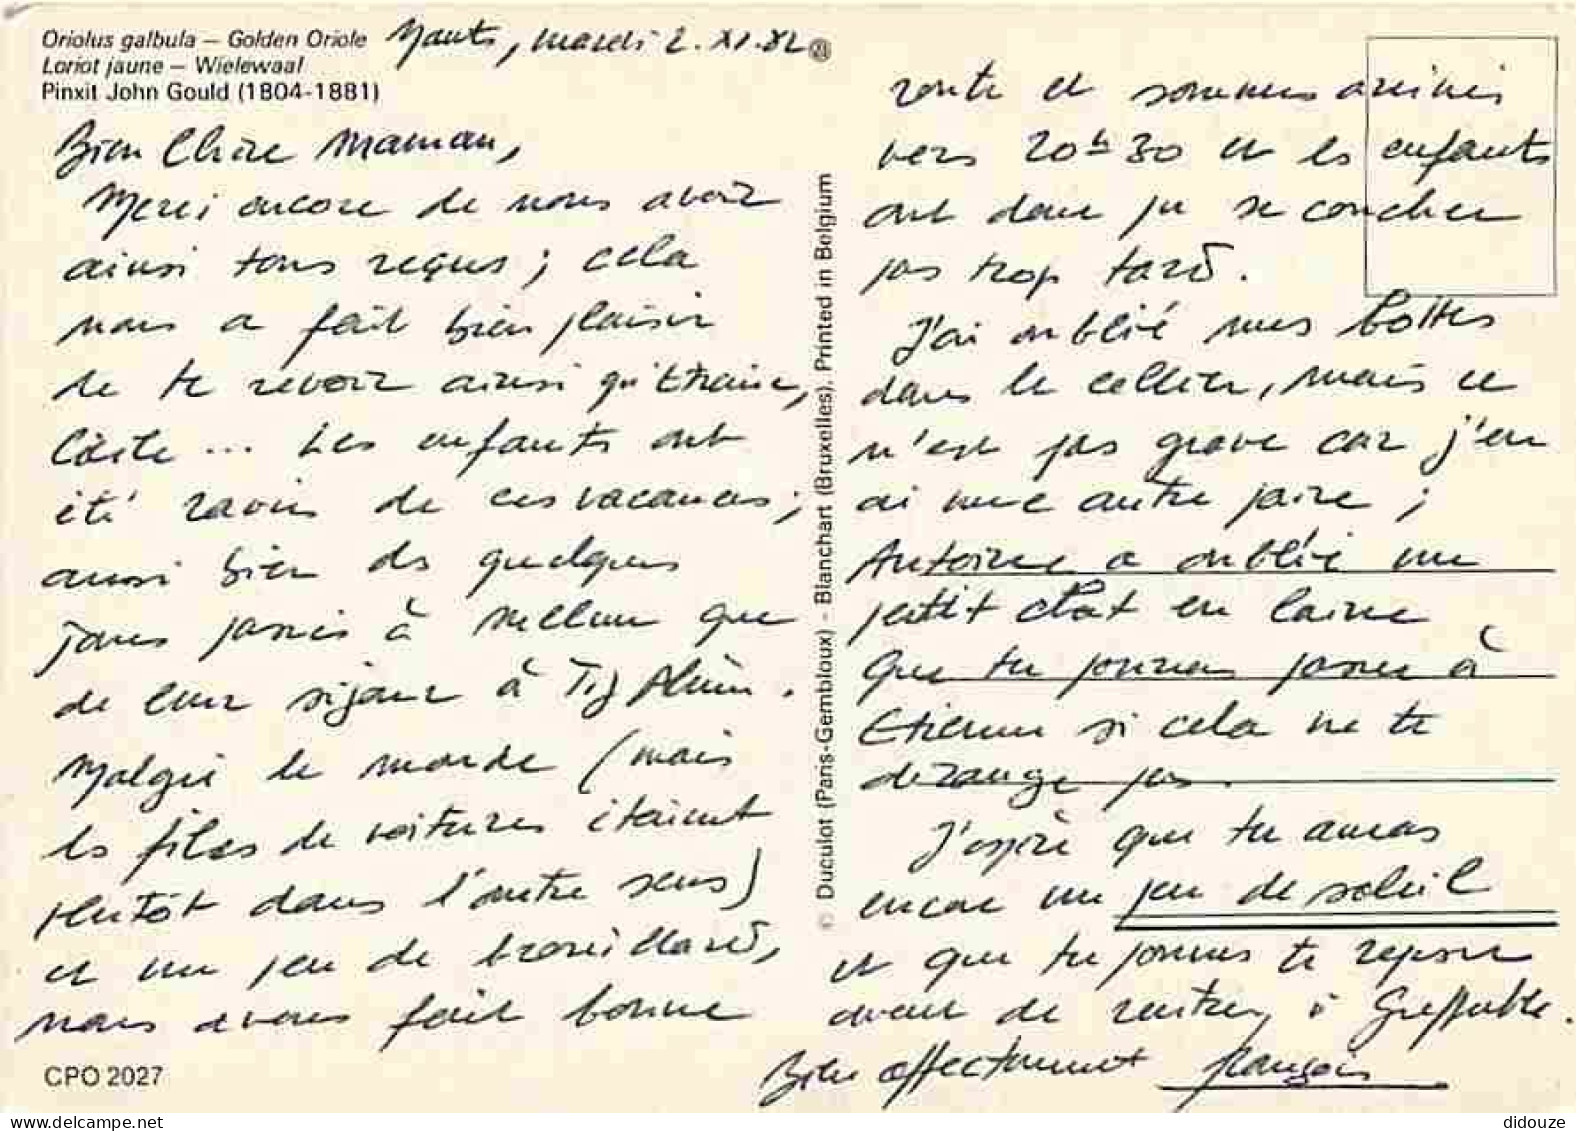 Oriolus galbula – Golden Oriole
Loriot jaune – Wielewaal
Pinxit John Gould (1804-1881)
mardi 2.XI.82
Bien Chère Maman,
Merci encore de nous avoir
ainsi tous reçus ; cela
nous a fait bien plaisir
de te revoir ainsi qu'
... Les enfants ont
été ravis de ces vacances ;
aussi bien des quelques
jours passés à que
de leur séjour à
Malgré le monde (mais
les files de voitures étaient
plutôt dans l'autre sens)
et un peu de brouillard,
nous avons fait bonne
CPO 2027
© Duculot (Paris-Gembloux) - Blanchart (Bruxelles). Printed in Belgium
route et sommes arrivés
vers 20h30 et les enfants
ont donc pu se coucher
pas trop tard.
J'ai oublié mes bottes
dans le cellier, mais ce
n'est pas grave car j'en
ai une autre paire ;
Antoine a oublié un
petit chat en laine
que tu pourras passer à
Etienne si cela ne te
dérange pas.
J'espère que tu auras
encore un peu de soleil
et que tu pourras te reposer
avant de rentrer à
Bien affectueusement François
didouze